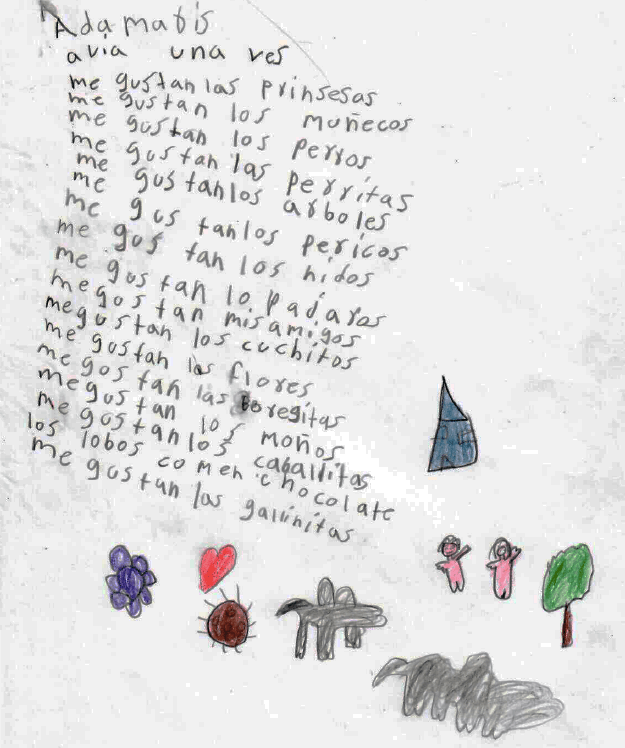 Adamatis
avia una ves
me gustan las prinsesas
me gustan los muñecos
me gustan los perros
me gustan las perritas
me gustanlos arboles
me gus tanlos pericos
me gus tan los nidos
me gus tan lo padaros
megos tan misamigos
megustan los cuchitos
me gustan las flores
me gos tan las boregitas
megustan los moños
me gustanlos caballitas
los lobos comen chocolate
me gustan las gallinitas